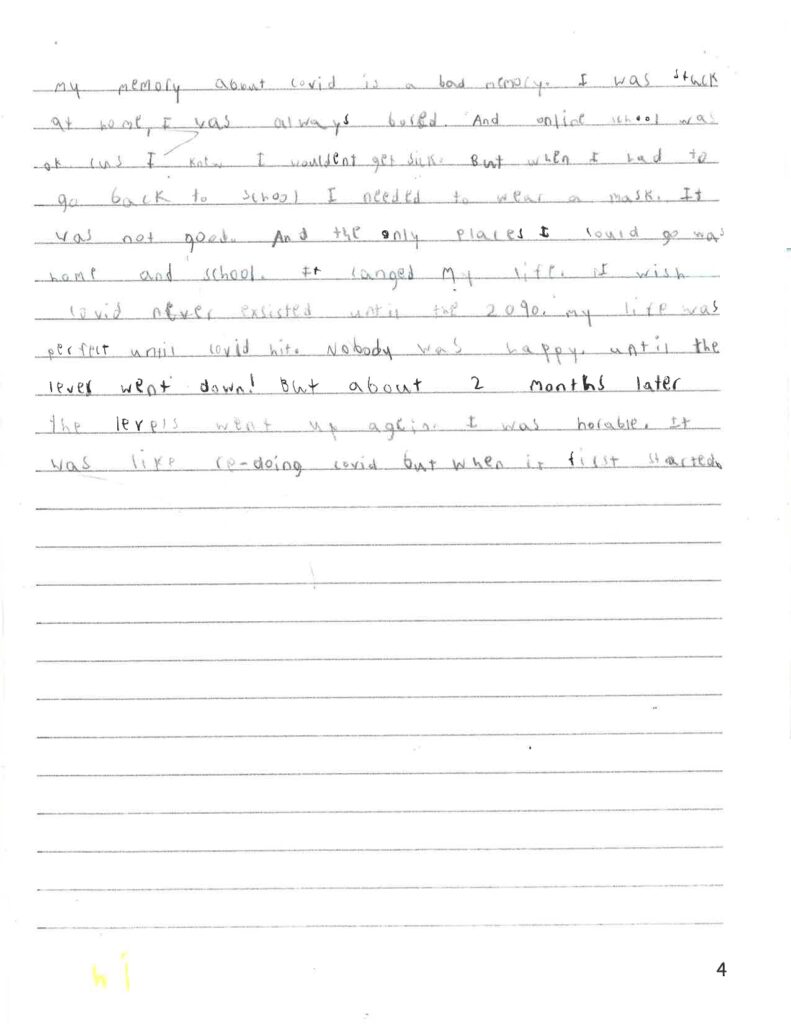 my memory about covid is a bad memory. I was stuck
at home, I was always bored. And online school was
ok cus I knew I wouldent get sick. But when I had to
go back to school I needed to wear a mask. It
was not good. And the only places I could go was
home and school. It canged my life. I wish
covid never exsisted until the 2090. my life was
perfect until covid hit. Nobody was happy. until the
level went down! But about 2 months later
the levels went up again. I was horable. It
was like re-doing covid but when it first started.
hi
4